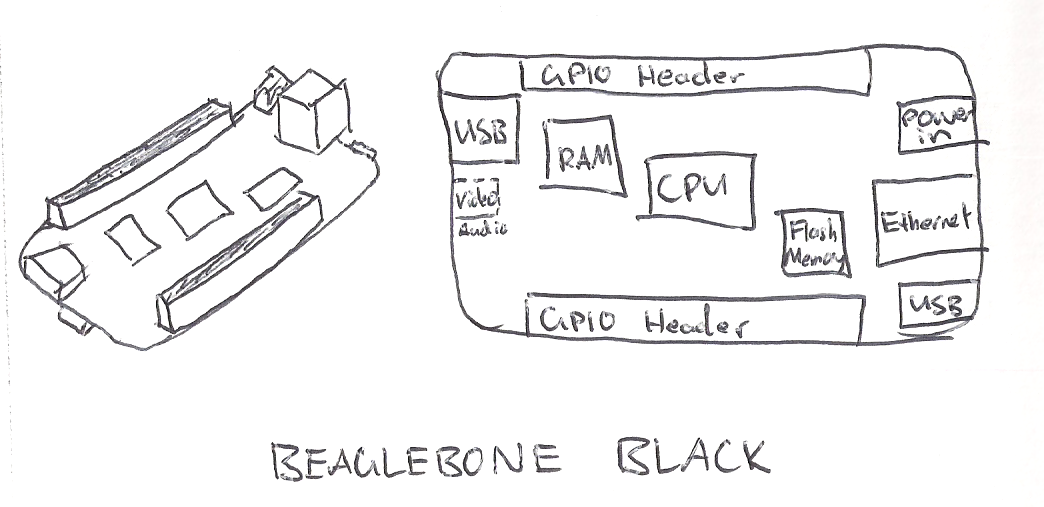 GPIO Header
USB
Power
in
RAM
CPU
Video
Audio
Ethernet
Flash
Memory
USB
GPIO Header
BEAGLEBONE BLACK